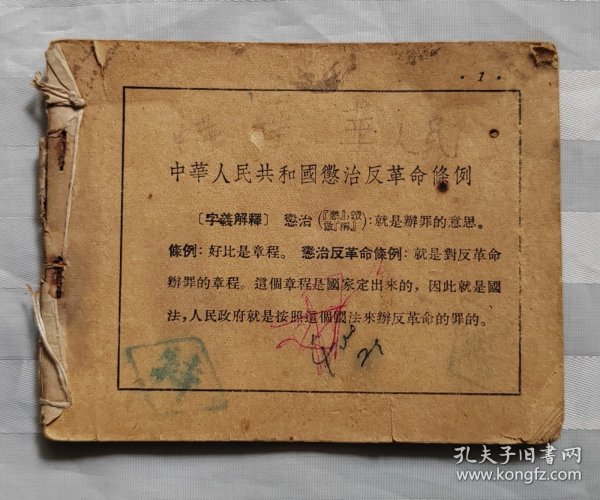 ·1·
華人民
中華人民共和國懲治反革命條例
〔字義解釋〕 懲治(『懲』讀做『稱』):就是辦罪的意思。
條例:好比是章程。 懲治反革命條例:就是對反革命
辦罪的章程。這個章程是國家定出來的,因此就是國
法,人民政府就是按照這個國法來辦反革命的罪的。
孔夫子旧书网
www.kongfz.com